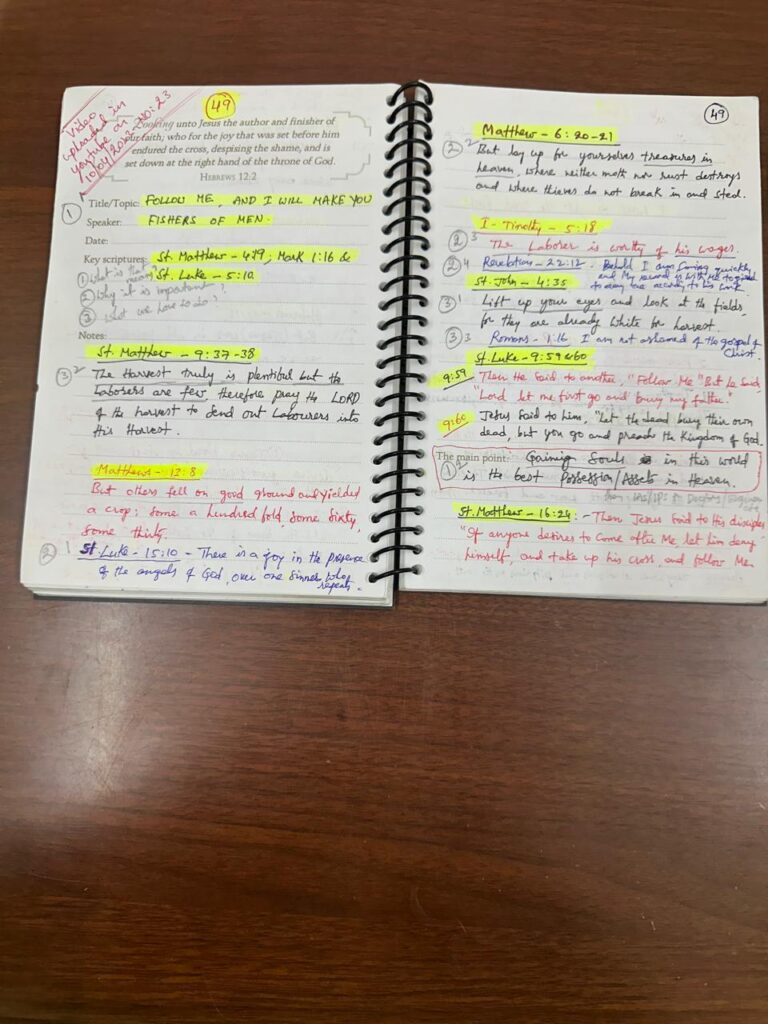 Video
uploaded in
youtube on
10/04/2023
49
Looking unto Jesus the author and finisher of
our faith; who for the joy that was set before him
endured the cross, despising the shame, and is
set down at the right hand of the throne of God.
HEBREWS 12:2
① Title/Topic: FOLLOW ME, AND I WILL MAKE YOU
Speaker: FISHERS OF MEN.
Date:
Key scriptures: St. Matthew - 4:19; Mark 1:16 &
① What is that means? St. Luke - 5:10
② Why it is important?
③ What we have to do?
Notes:
St. Matthew - 9:37-38
③ 2 The Harvest truly is plentiful but the
Labourers are few, therefore pray the LORD
of the harvest to send out Labourers into
His Harvest.
Matthew - 13:8
But others fell on good ground and yielded
a crop: some a hundred fold, some sixty,
some thirty.
② 1 St. Luke - 15:10 - There is a joy in the presence
of the angels of God, over one sinner who
repents.
49
Matthew - 6:20-21
② 2 But lay up for yourselves treasures in
heaven, where neither moth nor rust destroys
and where thieves do not break in and steal.
I - Timothy - 5:18
② 3 The Laborer is worthy of his wages.
② 4 Revelation - 22:12 - Behold I am Coming quickly
and My reward is with Me to give
to every one according to his work.
St. John - 4:35
③ 1 Lift up your eyes and look at the fields,
for they are already white for harvest.
③ 3 Romans - 1:16 I am not ashamed of the gospel of
Christ.
St. Luke - 9:59 & 60
9:59 Then He Said to another, "Follow Me" But he Said,
"Lord, let me first go and bury my father."
9:60 Jesus Said to him, "Let the dead bury their own
dead, but you go and preach the Kingdom of God.
The main point: Gaining Souls in this world
① 2 is the best Possession/Assets in Heaven.
St. Matthew - 16:24 :- Then Jesus Said to His disciples
"If anyone desires to Come after Me, let him deny
himself, and take up his cross, and follow Me